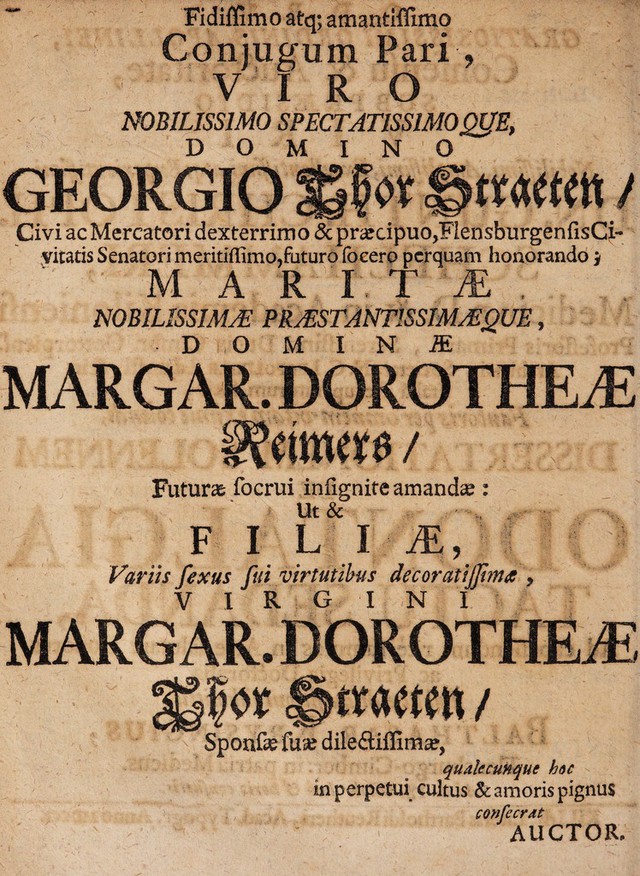 Fidiſſimo atq; amantiſſimo
Conjugum Pari,
VIRO
NOBILISSIMO SPECTATISSIMOQUE,
DOMINO
GEORGIO Thor Straeten /
Civi ac Mercatori dexterrimo & præcipuo, Flensburgenſis Ci-
vitatis Senatori meritiſſimo, futuro ſocero perquam honorando;
MARITÆ
NOBILISSIMÆ PRÆSTANTISSIMÆQUE,
DOMINÆ
MARGAR. DOROTHEÆ
Reimers /
Futuræ ſocrui inſignite amandæ:
Ut &
FILIÆ,
Variis ſexus ſui virtutibus decoratiſſimæ,
VIRGINI
MARGAR. DOROTHEÆ
Thor Straeten /
Sponſæ ſuæ dilectiſſimæ,
qualecunque hoc
in perpetui cultus & amoris pignus
conſecrat
AUCTOR.